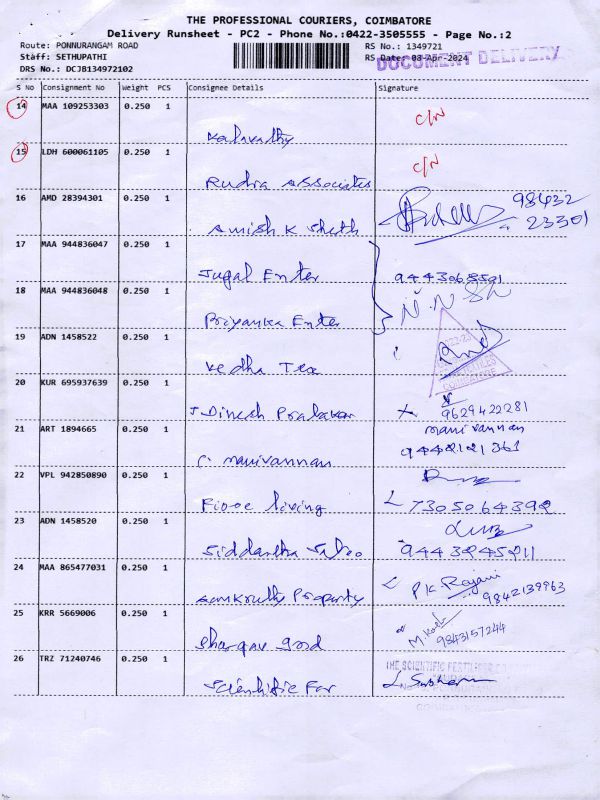 THE PROFESSIONAL COURIERS, COIMBATORE
Delivery Runsheet - PC2 - Phone No.:0422-3505555 - Page No.:2
Route: PONNURANGAM ROAD RS No.: 1349721
Staff: SETHUPATHI RS Date: 08-Apr-2024
DOCUMENT DELIVERY
DRS No.: DCJB134972102
S No Consignment No Weight PCS Consignee Details Signature
14 MAA 109253303 0.250 1 C/N
Kalavathy
15 LDH 600061105 0.250 1 C/N
Rudra Associates
16 AMD 28394301 0.250 1 98432
23301
Amish K Sheth
17 MAA 944836047 0.250 1
Jugal Enter 9443068501
18 MAA 944836048 0.250 1
Priyanka Enter
19 ADN 1458522 0.250 1
Vedha Tex COIMBATORE
20 KUR 695937639 0.250 1
J Dinesh Prabakar 9629422281
21 ART 1894665 0.250 1 manivannan
9442121361
C. manivannan
22 VPL 942850890 0.250 1
living 7305064392
23 ADN 1458520 0.250 1
9443245211
24 MAA 865477031 0.250 1 PK Rajani
9842139963
Property
25 KRR 5669006 0.250 1 9843157244
26 TRZ 71240746 0.250 1 THE SCIENTIFIC
Scientific Fer